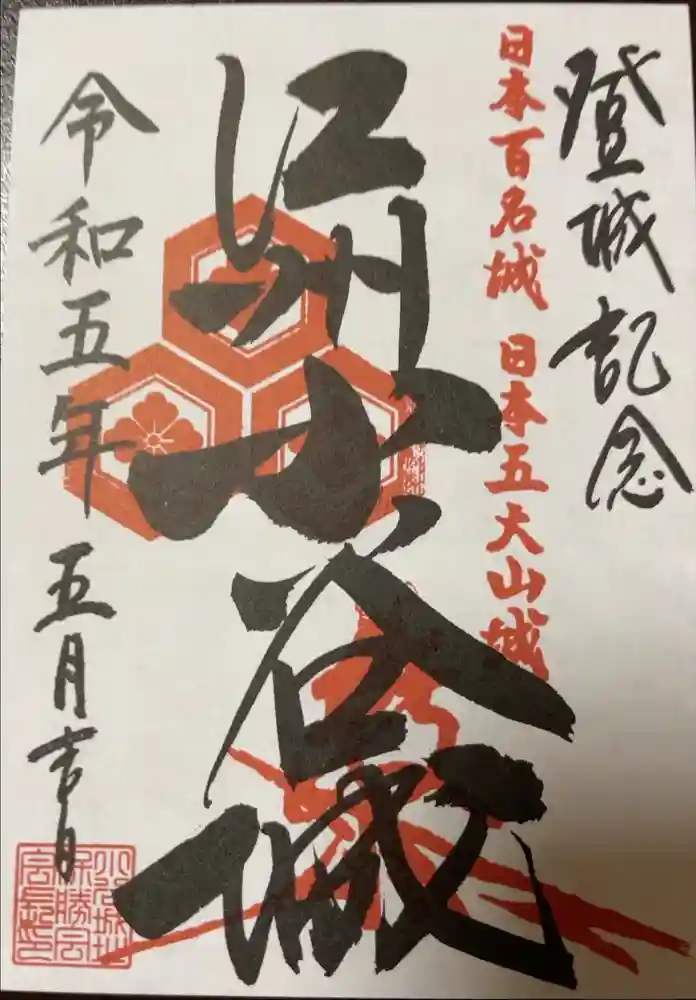 登城記念
日本百名城 日本五大山城
江州小谷城
令和五年五月吉日
小谷城址保勝会